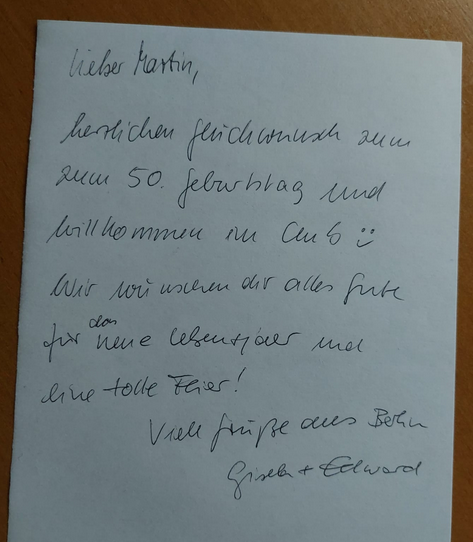 Lieber Martin,
herzlichen Glückwunsch zum
zum 50. Geburtstag und
willkommen im Club ü
Wir wünschen dir alles Gute
für das neue Lebensjahr und
eine tolle Feier!
Viele Grüße aus Berlin
Gisela + Edward